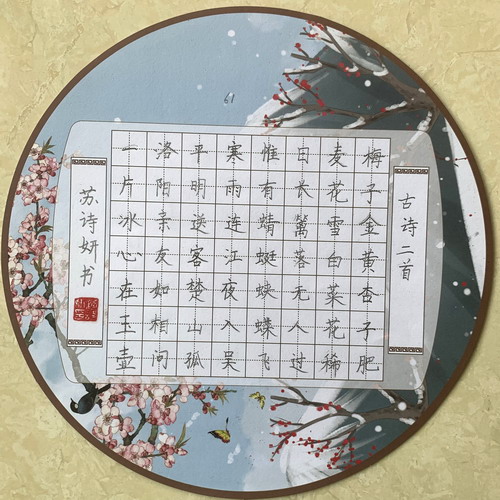 61
古诗二首
梅子金黄杏子肥
麦花雪白菜花稀
日长篱落无人过
惟有蜻蜓蛱蝶飞
寒雨连江夜入吴
平明送客楚山孤
洛阳亲友如相问
一片冰心在玉壶
苏诗妍书